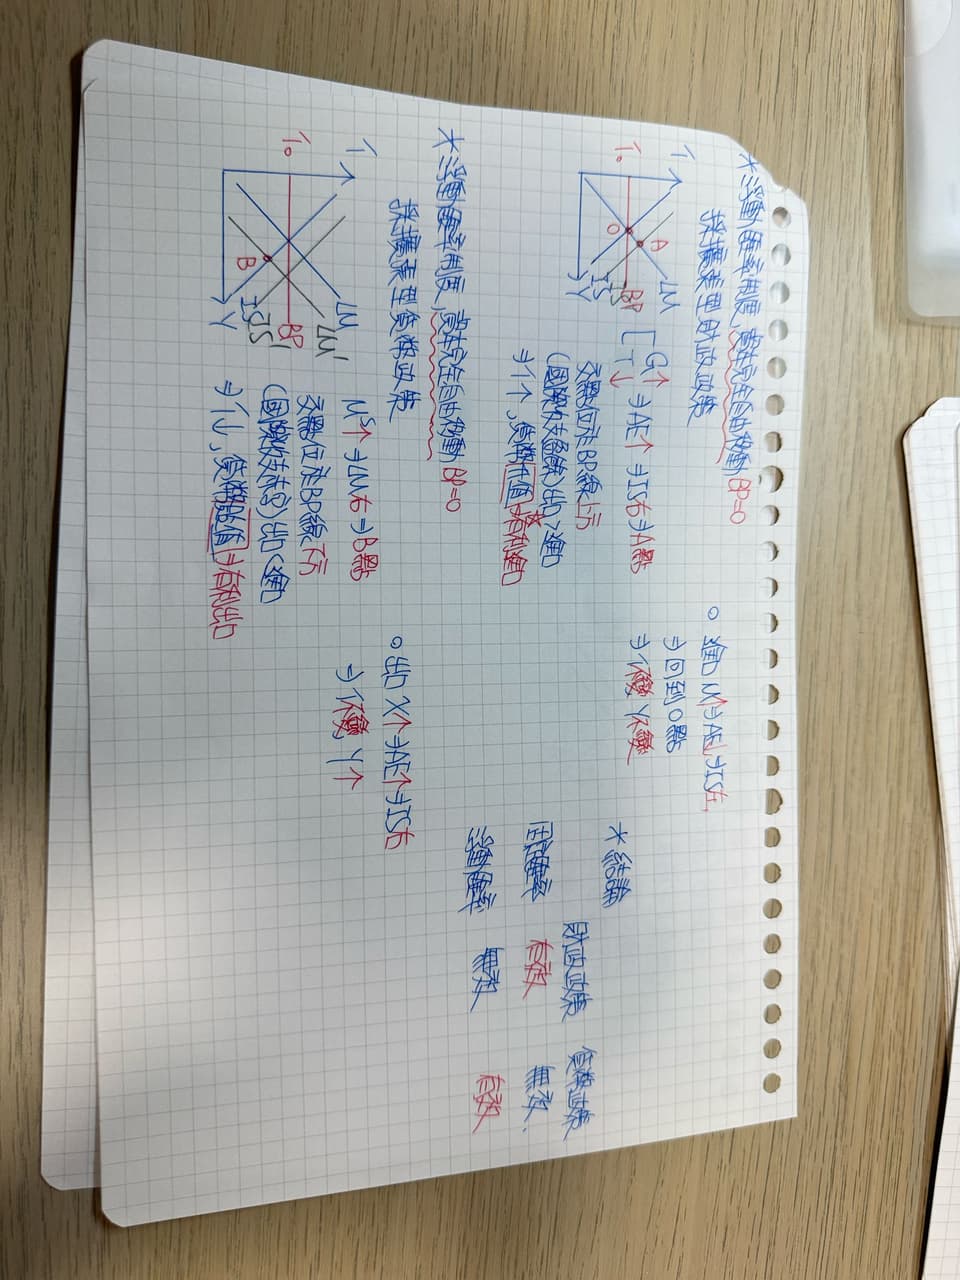 *浮動匯率制度，資本完全自由移動 BP=0
採擴張型財政政策
i
i₀
LM
A
O
BP
IS'
IS
Y
[G↑ ⇒AE↑ ⇒IS右⇒A點
T↓
交點位於BP線上方
(國際收支盈餘) 出口>進口
⇒i↑，貨幣升值→有利進口
。進口M↑⇒AE↓⇒IS左
⇒回到O點
⇒i不變 Y不變
*浮動匯率制度，資本完全自由移動 BP=0
採擴張型貨幣政策
i
i₀
LM
LM'
BP
IS'
IS
B
Y
Mˢ↑⇒LM右⇒B點
交點位於BP線下方
(國際收支赤字) 出口<進口
⇒i↓，貨幣貶值⇒有利出口
。出口X↑⇒AE↑⇒IS右
⇒i不變 Y↑
*結論
財政政策 貨幣政策
固定匯率 有效 無效
浮動匯率 無效 有效